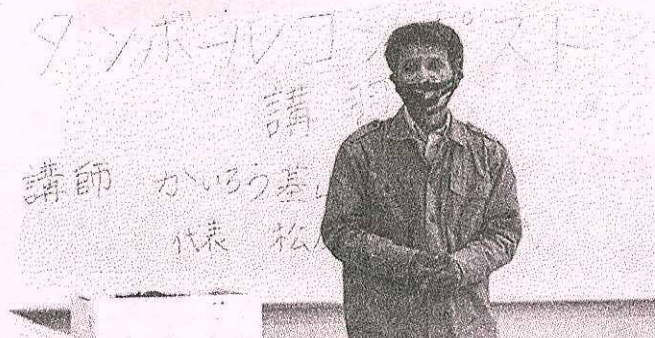 ダンボールコンポスト
講習
講師 かいろう基山
代表 松